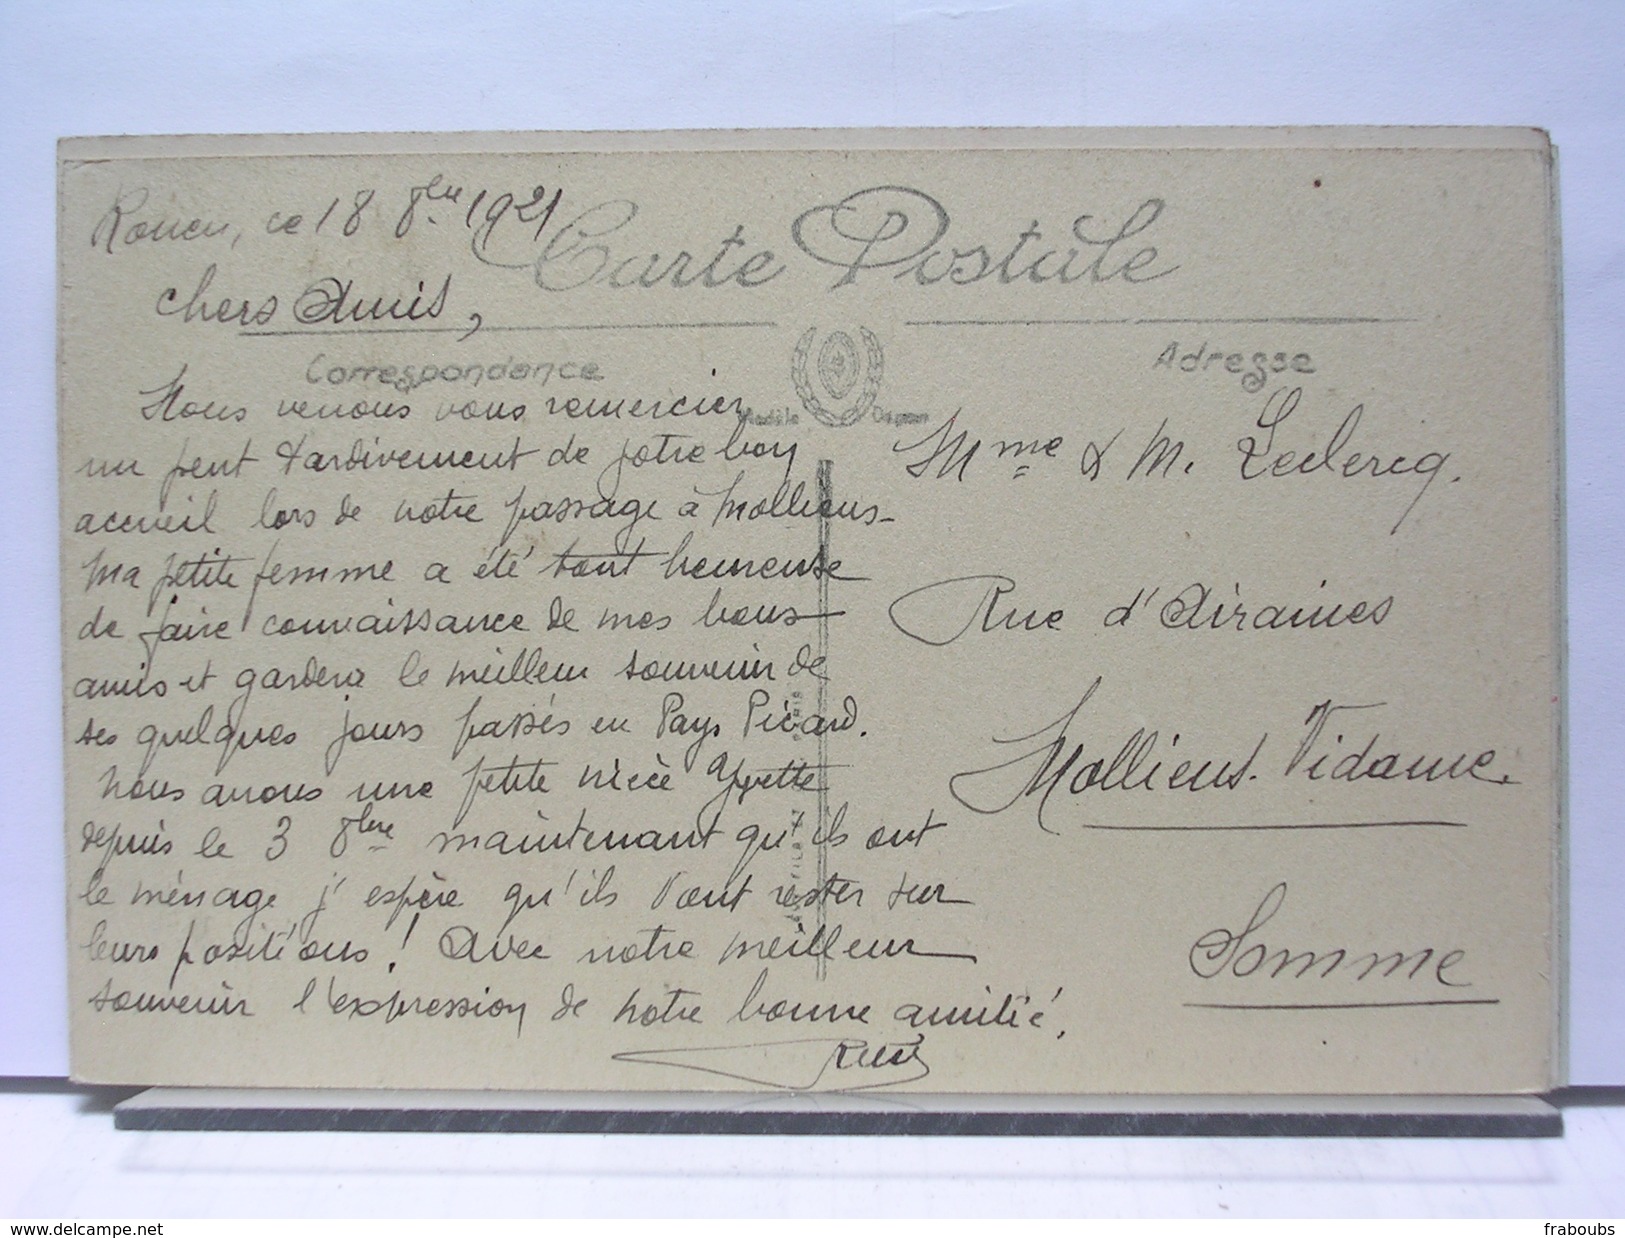 Rouen, ce 18 8bre 1921
Carte Postale
Chers Amis,
Correspondance
Adresse
Modèle Déposé
Nous venons vous remercier
un peut tardivement de votre bon
accueil lors de notre passage à Molliens-
Ma petite femme a été tout heureuse
de faire connaissance de mes bons
amis et gardera le meilleur souvenir de
ses quelques jours passés en Pays Picard.
Nous avons une petite nièce Yvette
depuis le 3 8bre maintenant qu'ils ont
le ménage j'espère qu'ils vont rester sur
leurs positions! Avec notre meilleur
souvenir l'expression de notre bonne amitié.
Mme & M. Leclercq.
Rue d'Airaines
Molliens-Vidame.
Somme
www.delcampe.net
fraboubs